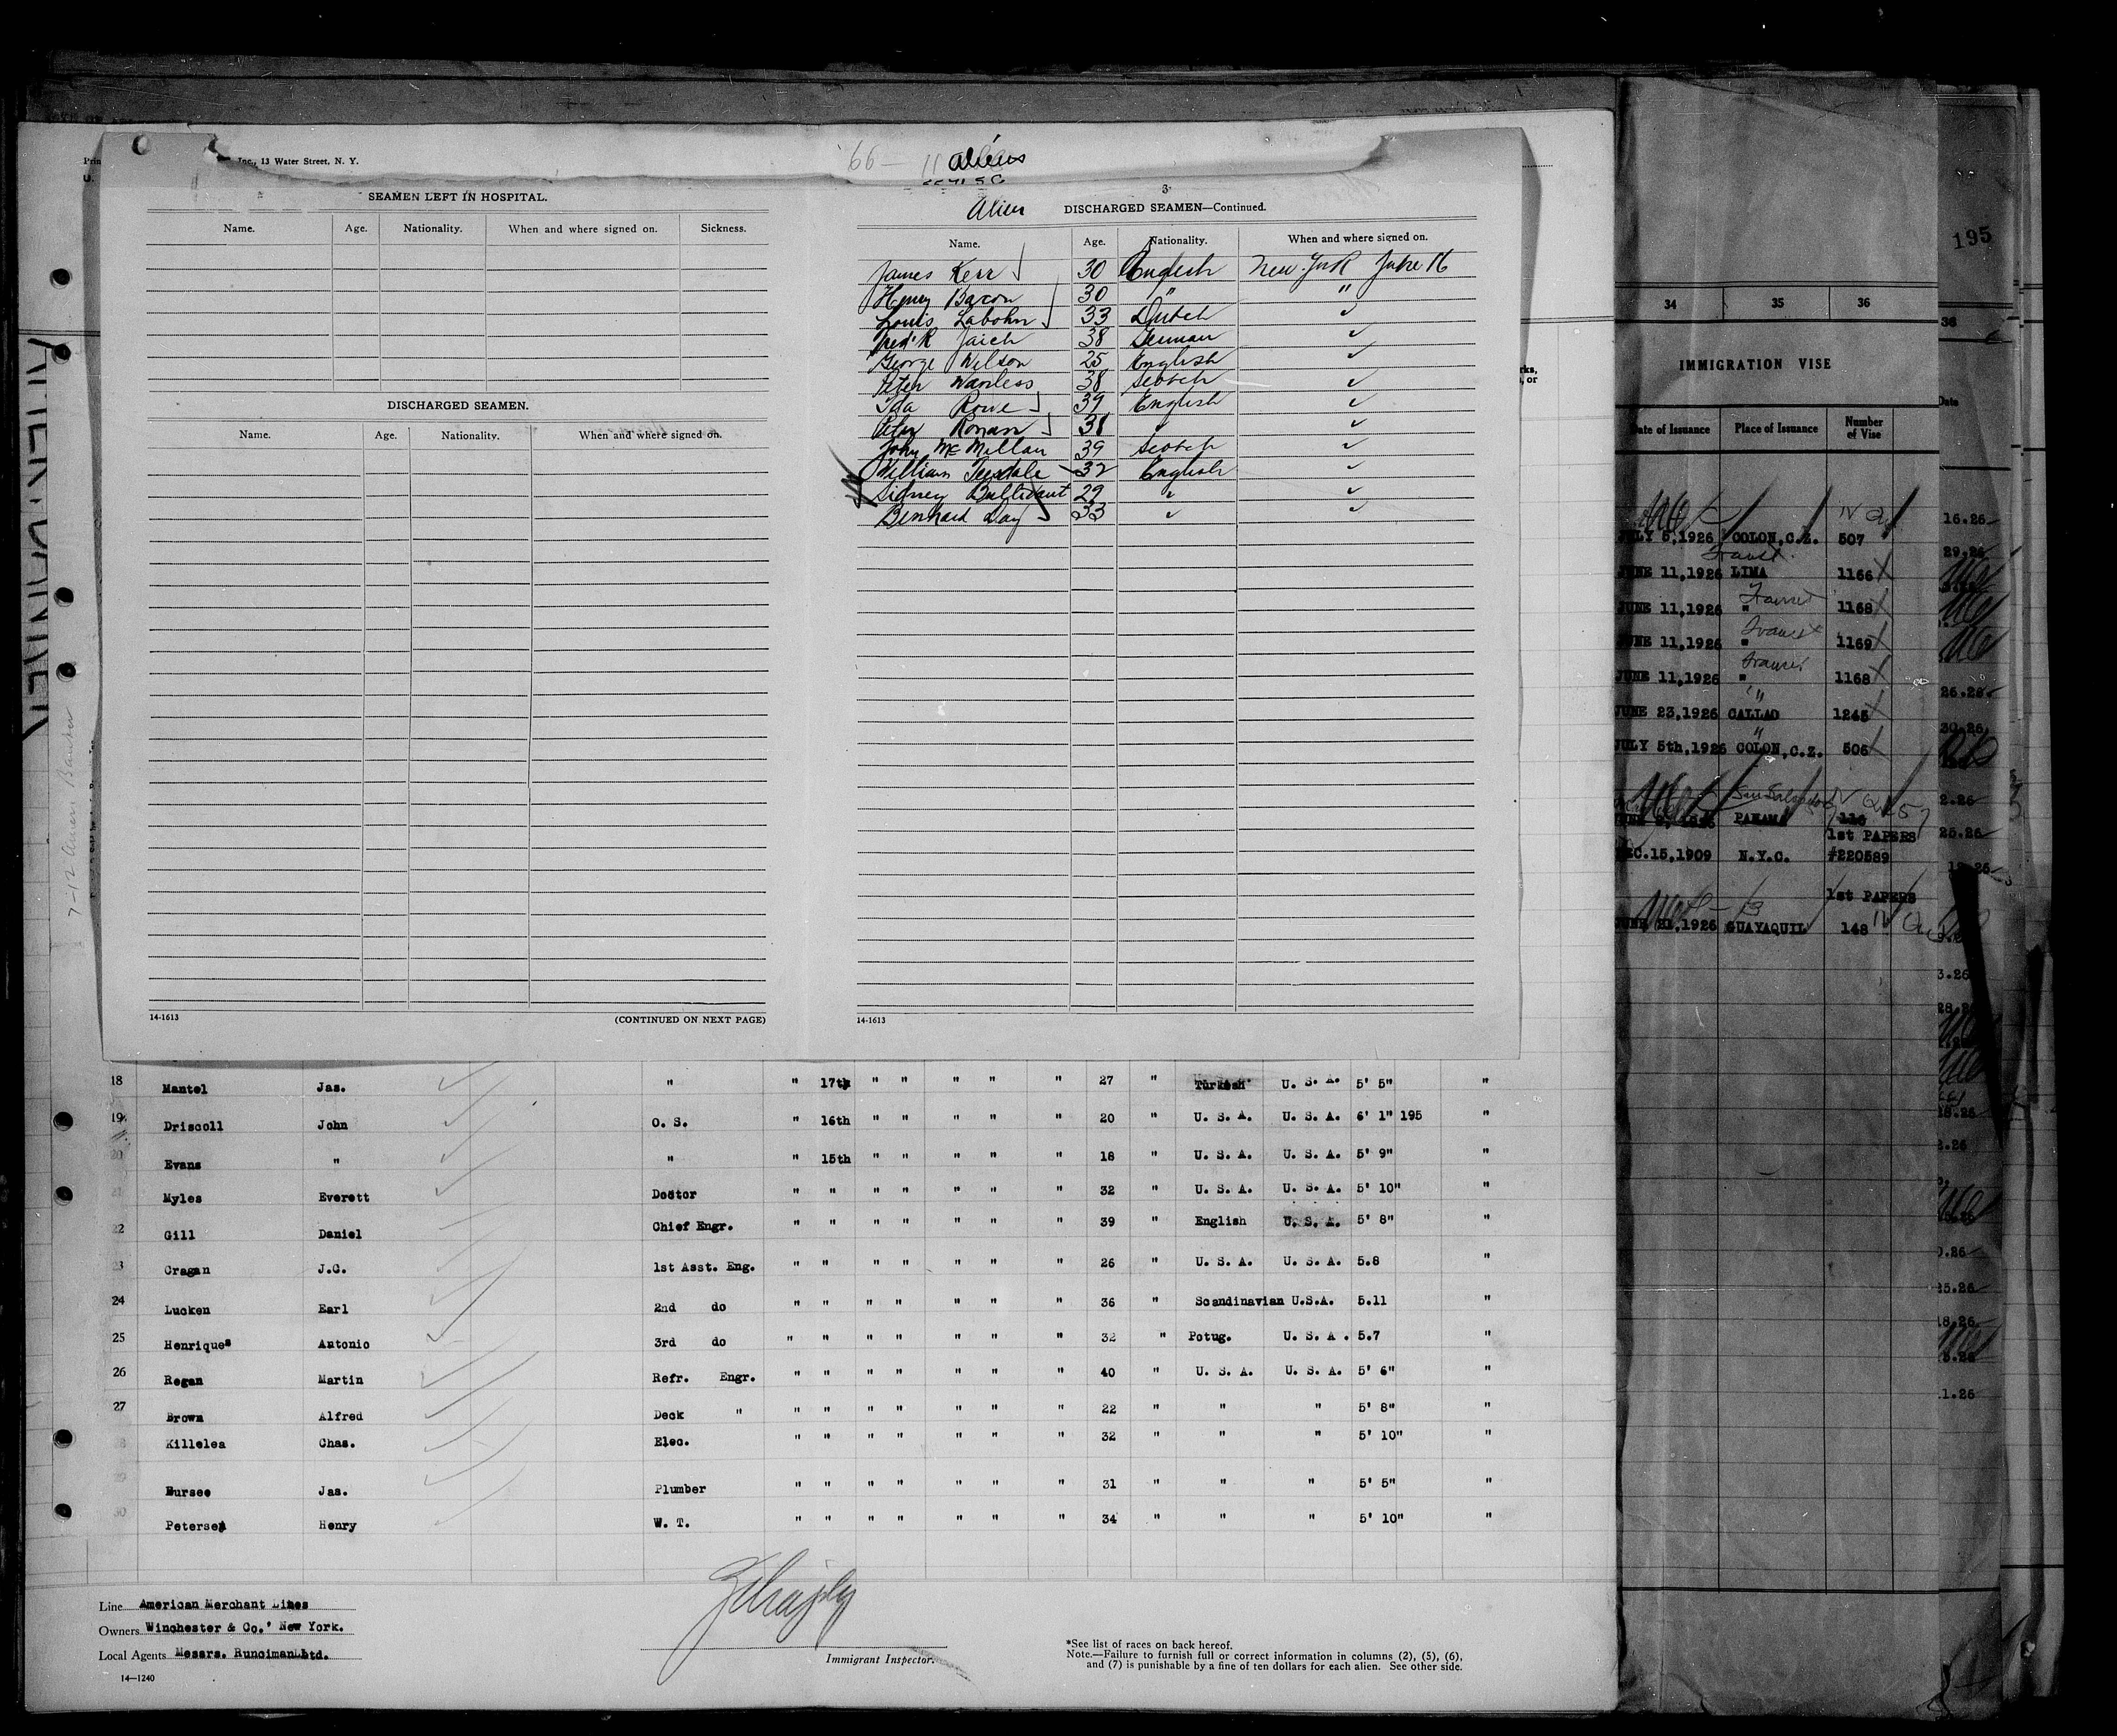 Inc., 13 Water Street, N. Y.
66 — 11 aliens
SEAMEN LEFT IN HOSPITAL.
Name. Age. Nationality. When and where signed on. Sickness.
DISCHARGED SEAMEN.
Name. Age. Nationality. When and where signed on.
14-1613 (CONTINUED ON NEXT PAGE)
3
Alien DISCHARGED SEAMEN—Continued.
Name. Age. Nationality. When and where signed on.
James Kerr 30 English New York June 16
Henry Bacon 30 " "
Louis Labohn 33 Dutch "
Fred'k Jaich 38 German "
George Wilson 25 English "
Peter Wanless 38 Scotch "
Ida Rowe 39 English "
Peter Ronan 38 " "
John McMillan 39 Scotch "
William Teesdale 32 English "
Sidney Bullivant 29 " "
Bernhard Day 33 " "
14-1613
7-12 Amer Banker
18 Mantel Jas. " " 17th " " " " " 27 " Turkish U. S. A. 5' 5" "
19 Driscoll John O. S. " 16th " " " " " 20 " U. S. A. U. S. A. 6' 1" 195 "
20 Evans " " " 15th " " " " " 18 " U. S. A. U. S. A. 5' 9" "
21 Myles Everett Doctor " " " " " " " 32 " U. S. A. U. S. A. 5' 10" "
22 Gill Daniel Chief Engr. " " " " " " " 39 " English U. S. A. 5' 8" "
23 Cragan J.C. 1st Asst. Eng. " " " " " " " 26 " U. S. A. U. S. A. 5.8 "
24 Lucken Earl 2nd do " " " " " " " 36 " Scandinavian U.S.A. 5.11 "
25 Henriques Antonio 3rd do " " " " " " " 32 " Potug. U. S. A. 5.7 "
26 Regan Martin Refr. Engr. " " " " " " " 40 " U. S. A. U. S. A. 5' 6" "
27 Brown Alfred Deck " " " " " " " " 22 " " " 5' 8" "
28 Killelea Chas. Elec. " " " " " " " 32 " " " 5' 10" "
29 Bursee Jas. Plumber " " " " " " " 31 " " " 5' 5" "
30 Petersen Henry W. T. " " " " " " " 34 " " " 5' 10" "
Line American Merchant Lines
Owners Winchester & Co.' New York.
Local Agents Messrs. Runciman Ltd.
14—1240
Immigrant Inspector.
*See list of races on back hereof.
Note.—Failure to furnish full or correct information in columns (2), (5), (6),
and (7) is punishable by a fine of ten dollars for each alien. See other side.
195
34 35 36
IMMIGRATION VISE
Date of Issuance Place of Issuance Number of Vise
JULY 5,1926 COLON,C.Z. 507
Transit
JUNE 11,1926 LIMA 1166
Transit
JUNE 11,1926 " 1168
Transit
JUNE 11,1926 " 1169
Transit
JUNE 11,1926 " 1168
"
JUNE 23,1926 CALLAO 1245
"
JULY 5th,1926 COLON,C.Z. 506
San Salvador
PANAMA 116
1st PAPERS
DEC.15,1909 N.Y.C. #220589
1st PAPERS
JUNE 21,1926 GUAYAQUIL 148